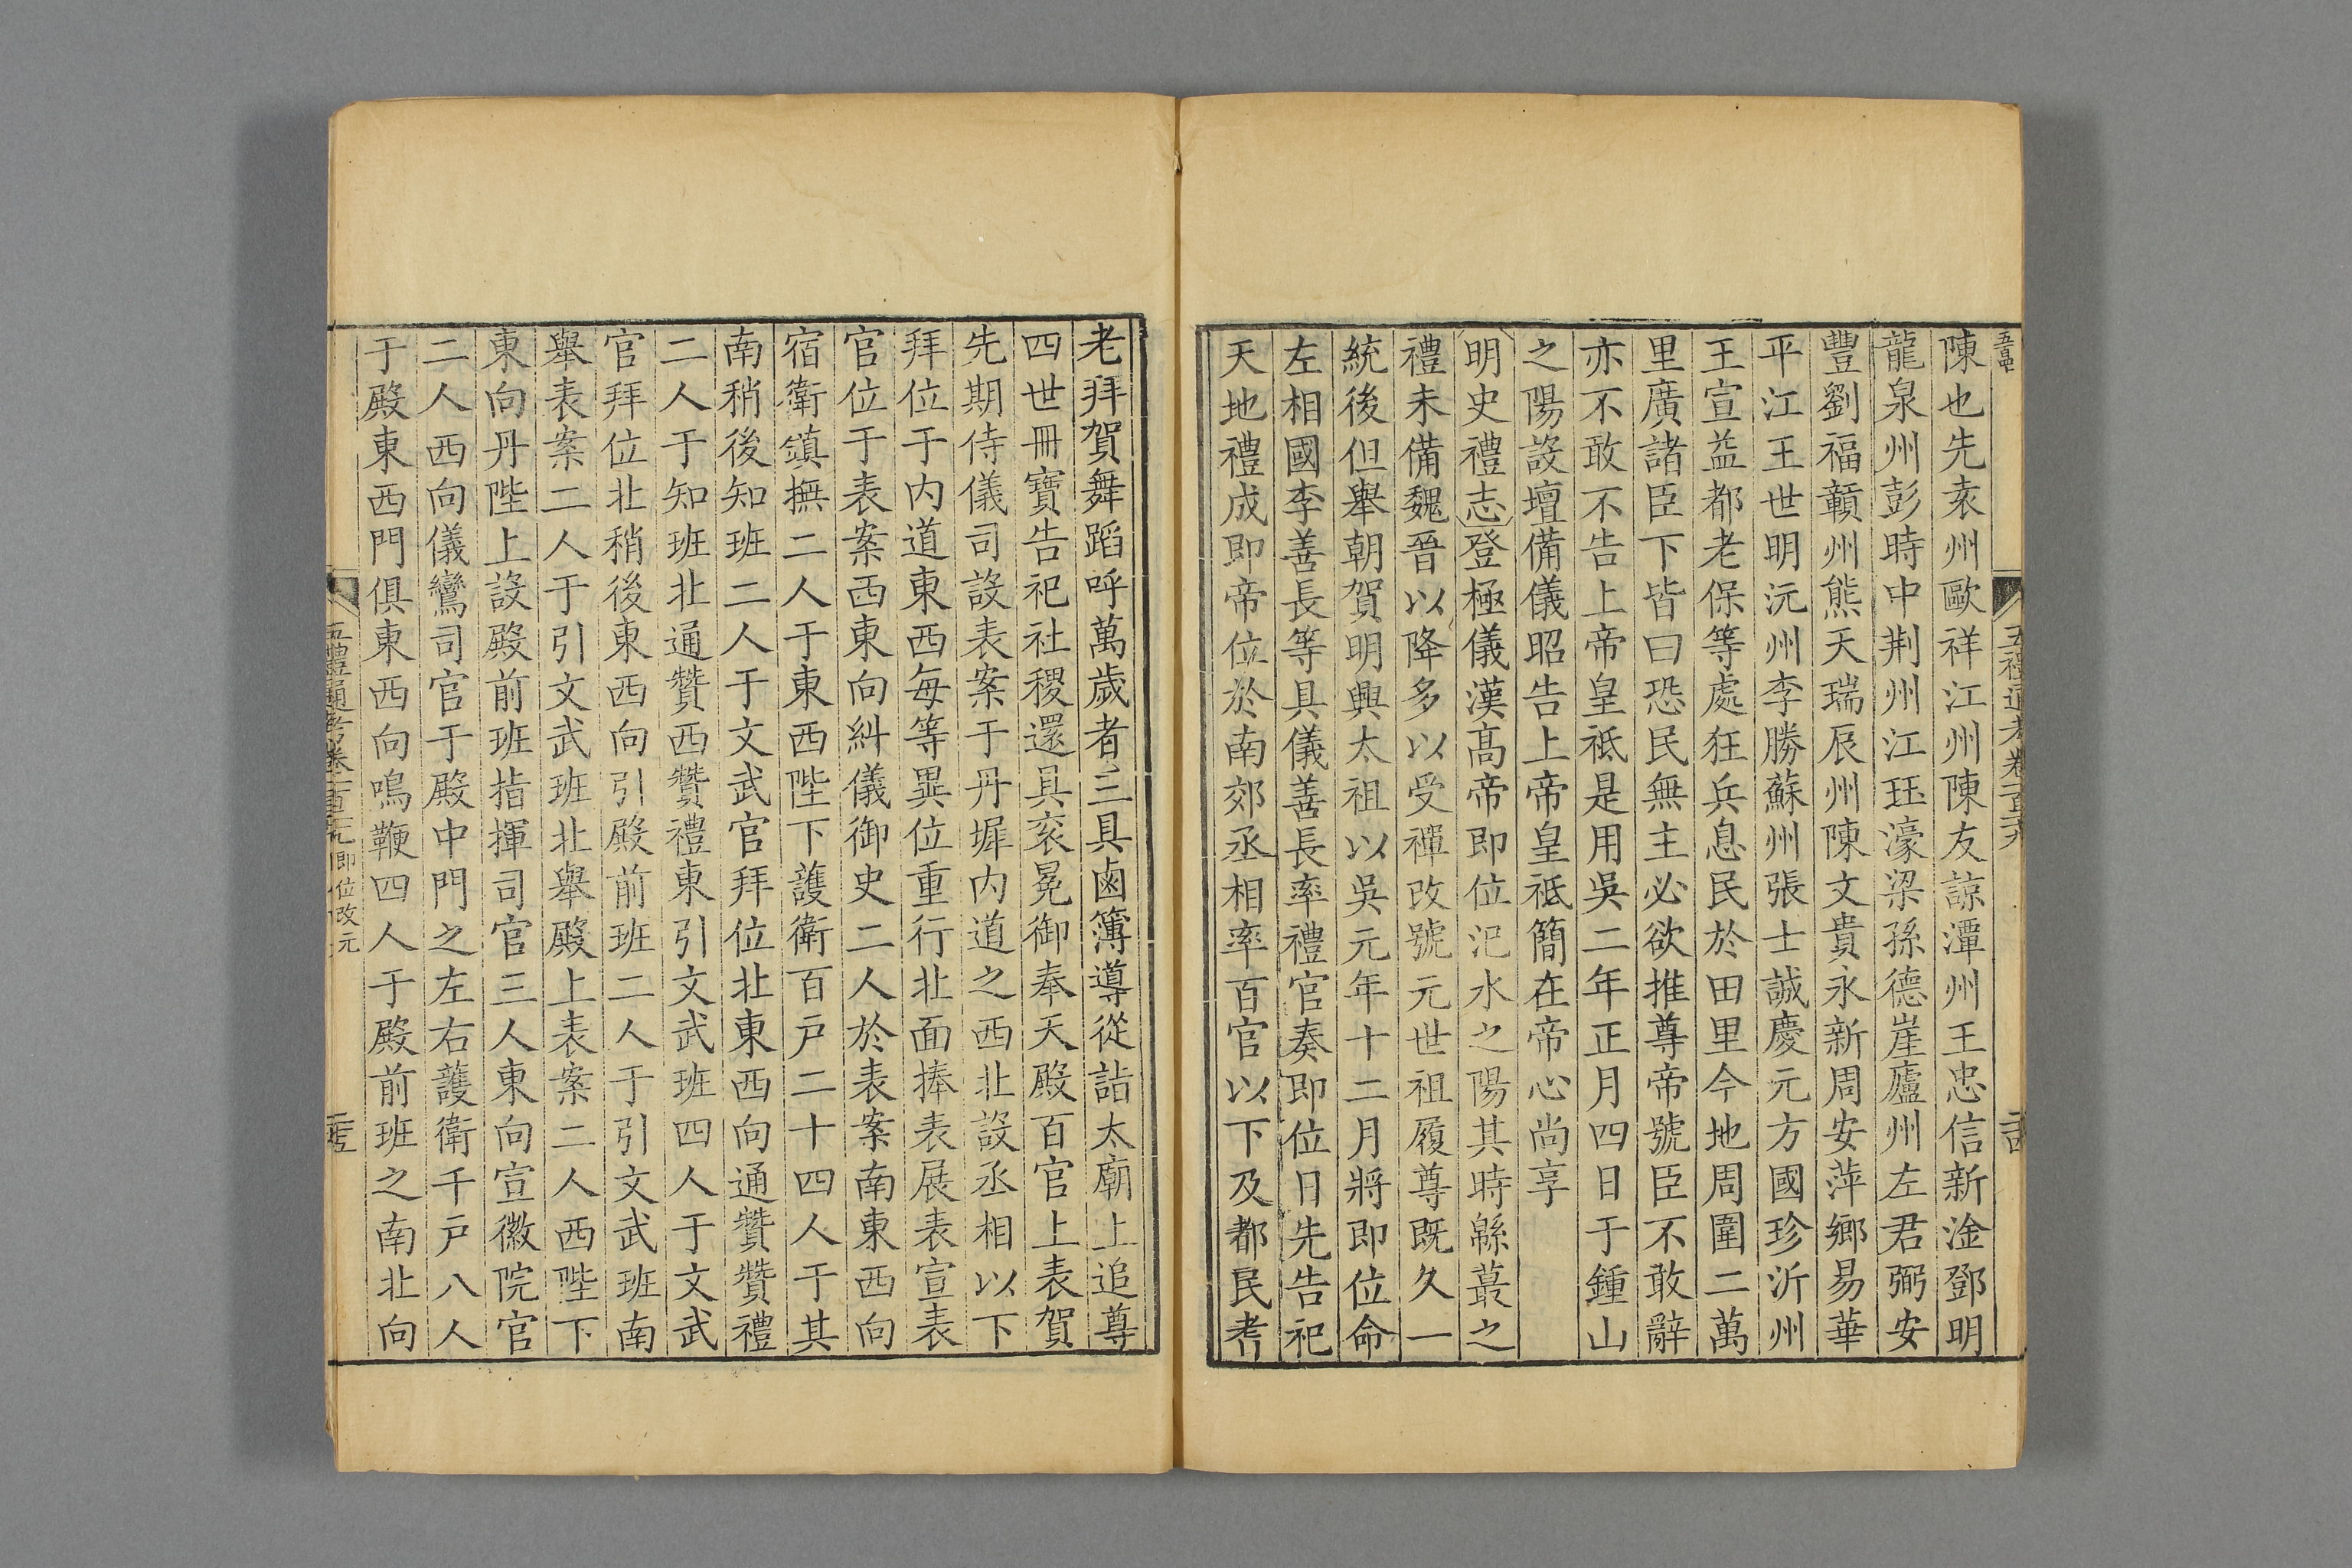 陳也先袁州歐祥江州陳友諒潭州王忠信新淦鄧明
龍泉州彭時中荆州江珏濠梁孫德崖廬州左君弼安
豐劉福贑州熊天瑞辰州陳文貴永新周安萍鄉易華
平江王世明沅州李勝蘇州張士誠慶元方國珍沂州
王宣益都老保等處狂兵息民於田里今地周圍二萬
里廣諸臣下皆曰恐民無主必欲推尊帝號臣不敢辭
亦不敢不告上帝皇祗是用吳二年正月四日于鍾山
之陽設壇備儀昭告上帝皇祗簡在帝心尚享
明史禮志登極儀漢髙帝即位汜水之陽其時緜蕞之
禮未備魏晉以降多以受禪改號元世祖履尊旣久一
統後但舉朝賀明興太祖以吳元年十二月將即位命
左相國李善長等具儀善長率禮官奏即位日先告祀
天地禮成即帝位於南郊丞相率百官以下及都民耆
老拜賀舞蹈呼萬歲者三具鹵簿導從詣太廟上追尊
四世冊寶告祀社稷還具袞冕御奉天殿百官上表賀
先期侍儀司設表案于丹墀内道之西北設丞相以下
拜位于内道東西每等異位重行北面捧表展表宣表
官位于表案西東向糾儀御史二人於表案南東西向
宿衛鎮撫二人于東西陛下護衛百戶二十四人于其
南稍後知班二人于文武官拜位北東西向通贊贊禮
二人于知班北通贊西贊禮東引文武班四人于文武
官拜位北稍後東西向引殿前班二人于引文武班南
舉表案二人于引文武班北舉殿上表案二人西陛下
東向丹陛上設殿前班指揮司官三人東向宣徽院官
二人西向儀鸞司官于殿中門之左右護衛千戶八人
于殿東西門俱東西向鳴鞭四人于殿前班之南北向
即位改元